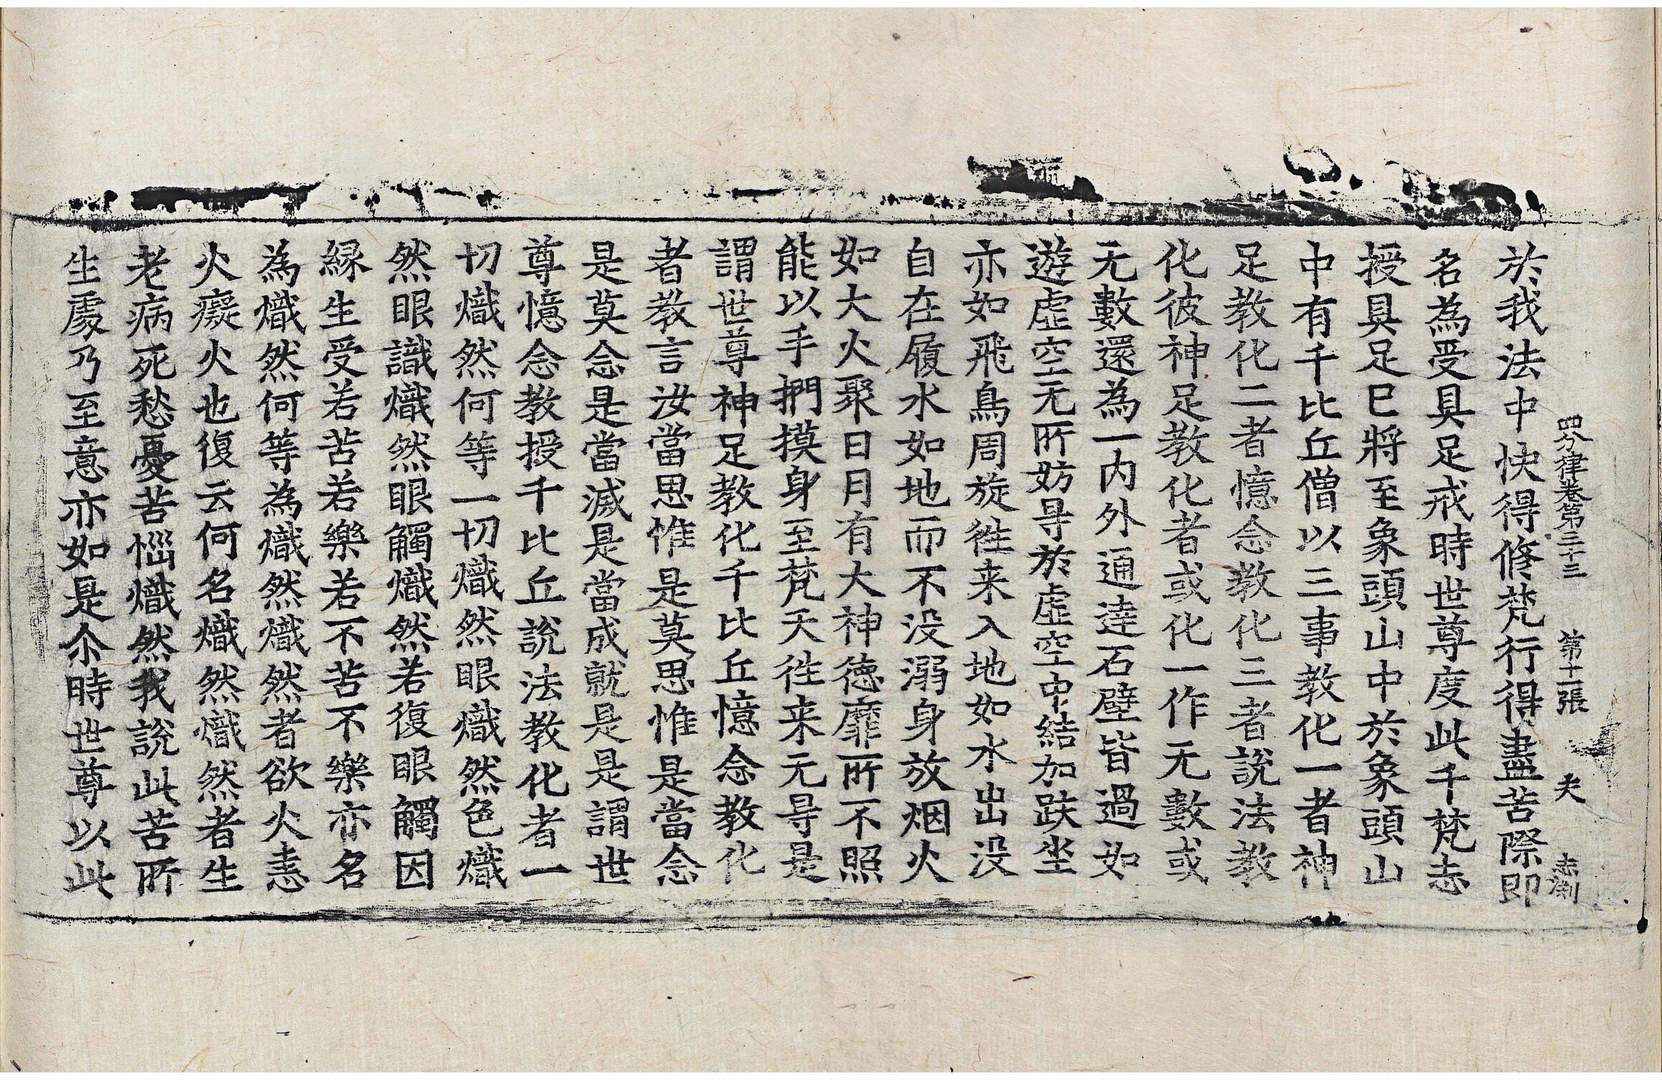 四分律卷第三十三　第十一張　夫　志刷
於我法中快得修梵行得盡苦際即
名為受具足戒時世尊度此千梵志
授具足已將至象頭山中於象頭山
中有千比丘僧以三事教化一者神
足教化二者憶念教化三者說法教
化彼神足教化者或化一作无數或
无數還為一内外通達石壁皆過如
遊虛空无所妨㝵於虛空中結加趺坐
亦如飛鳥周旋徃来入地如水出没
自在履水如地而不没溺身放烟火
如大火聚日月有大神德靡所不照
能以手捫摸身至梵天徃来无㝵是
謂世尊神足教化千比丘憶念教化
者教言汝當思惟是莫思惟是當念
是莫念是當滅是當成就是是謂世
尊憶念教授千比丘說法教化者一
切熾然何等一切熾然眼熾然色熾
然眼識熾然眼觸熾然若復眼觸因
緣生受若苦若樂若不苦不樂亦名
為熾然何等為熾然熾然者欲火恚
火癡火也復云何名熾然熾然者生
老病死愁憂苦惱熾然我說此苦所
生處乃至意亦如是尒時世尊以此